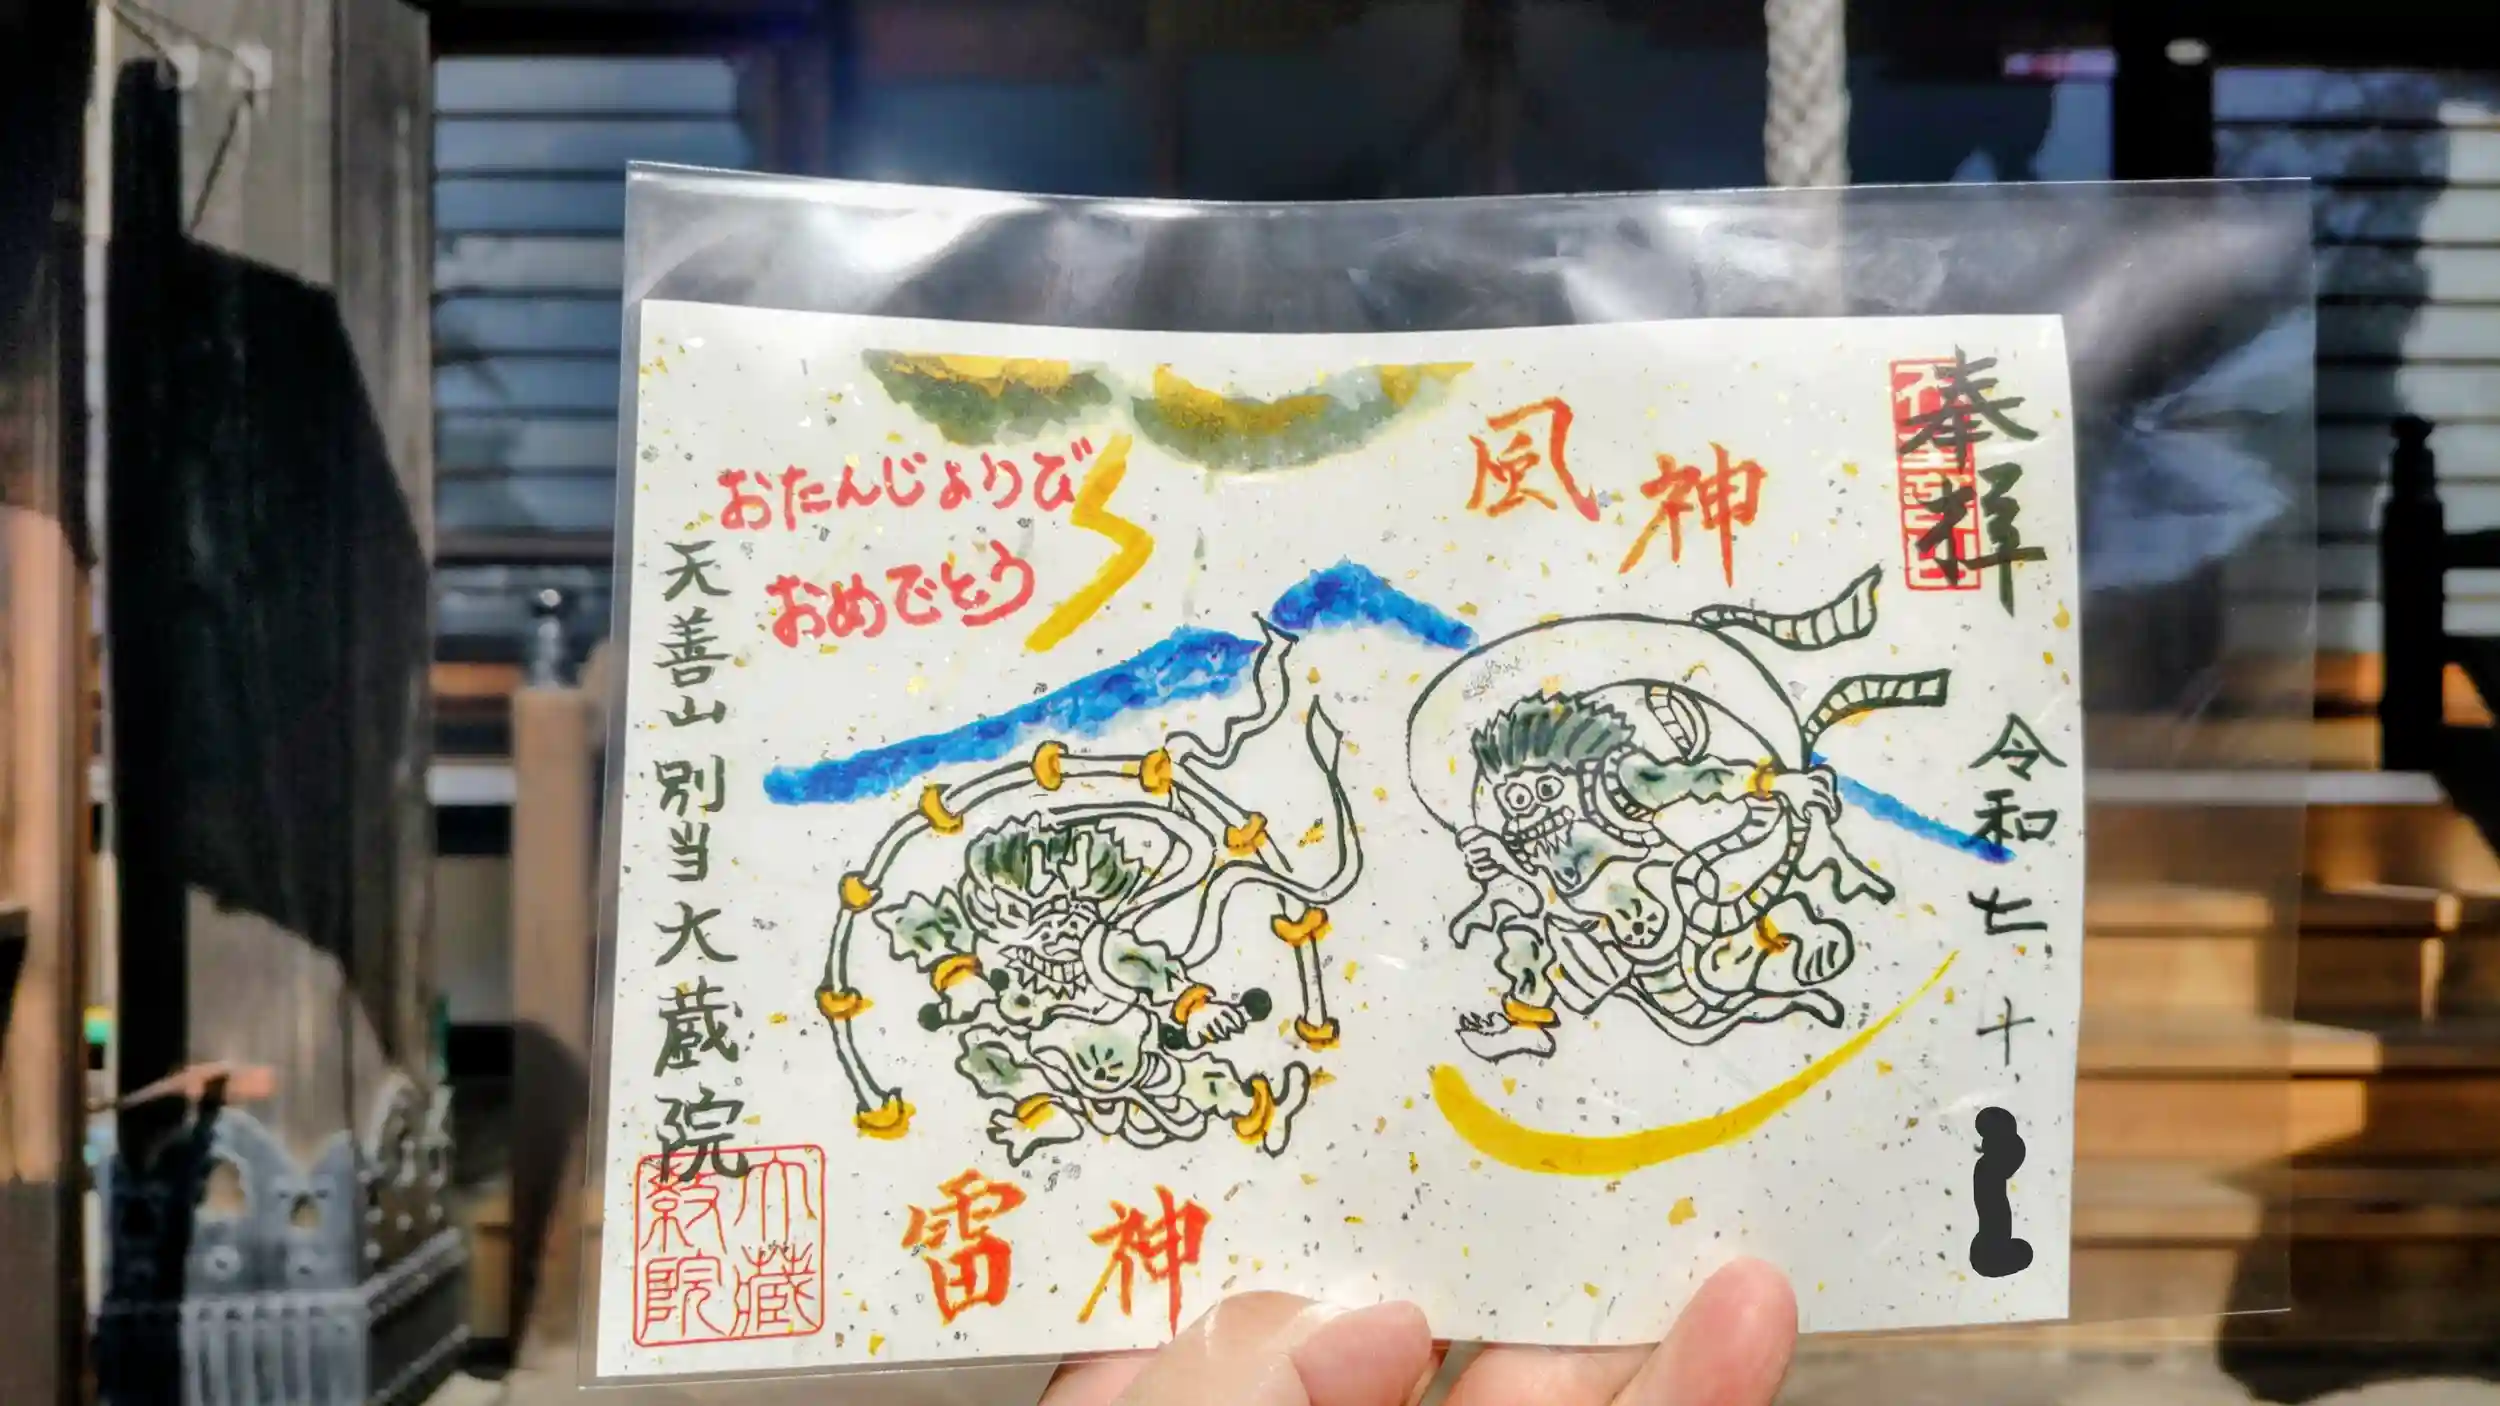 奉拝
令和七 十
風神
おたんじょうび
おめでとう
雷神
天善山別当大蔵院
大蔵
教院